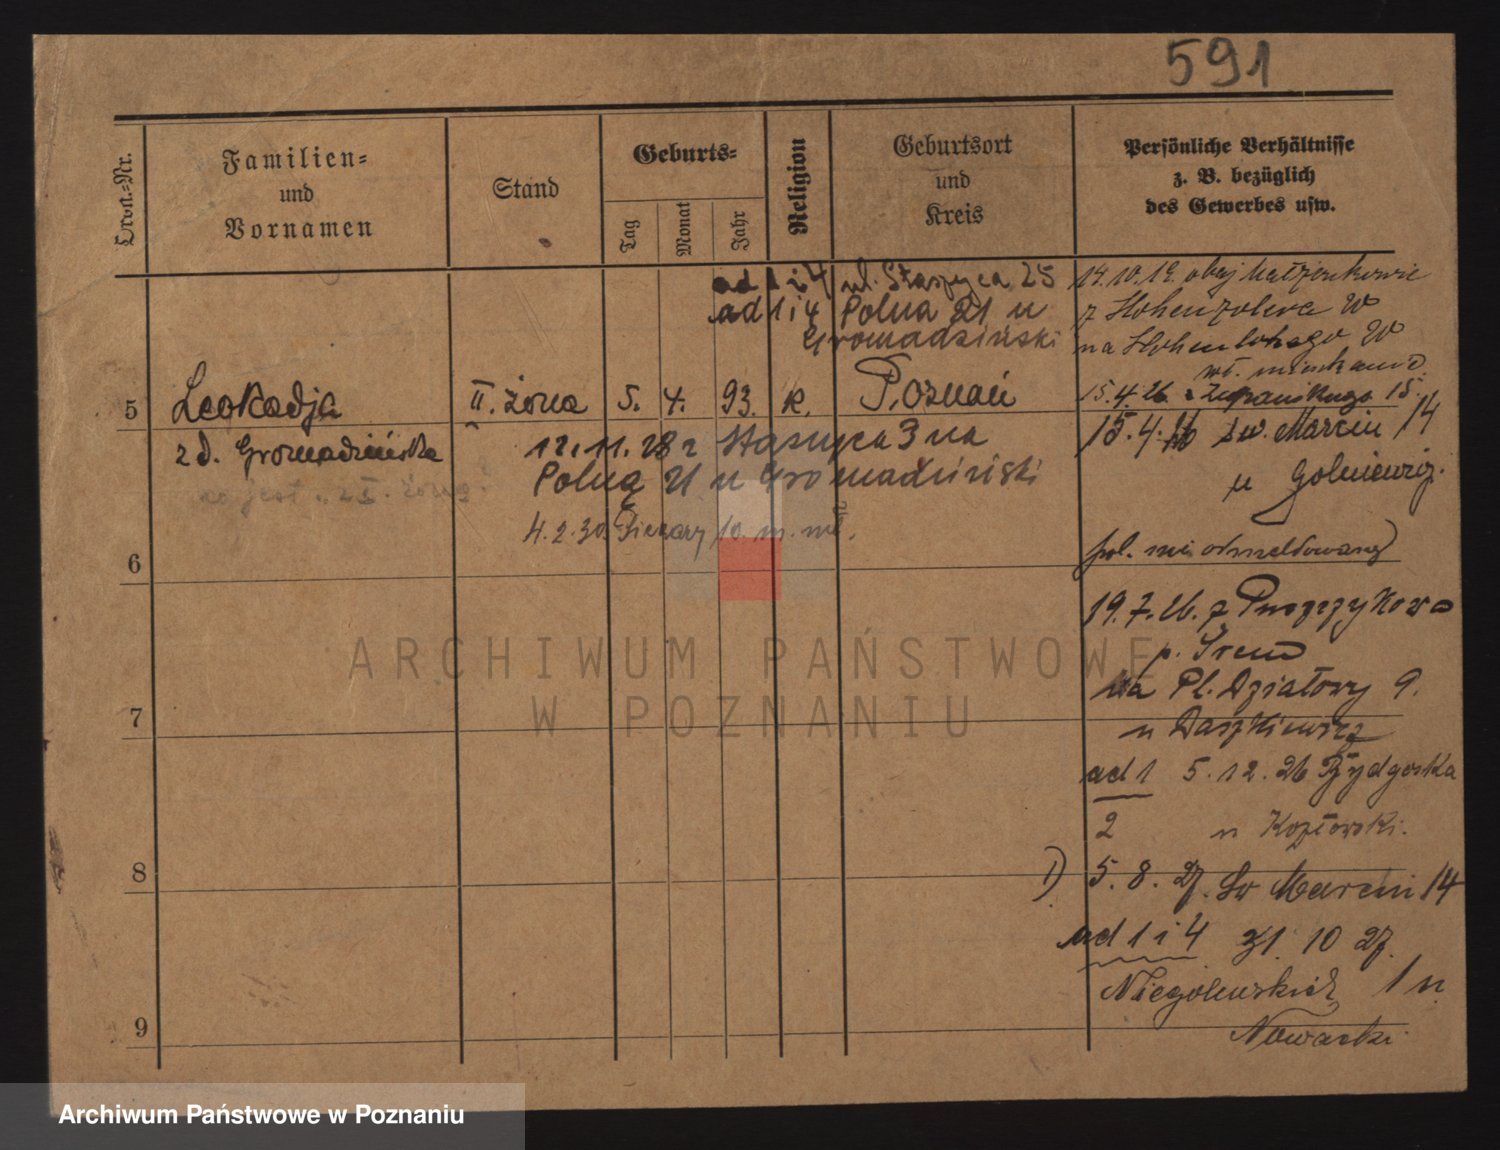 591
Ldn.-Nr.
Familien-
und
Vornamen
Stand
Geburts-
Tag
Monat
Jahr
Religion
Geburtsort
und
Kreis
Persönliche Verhältnisse
z. B. bezüglich
des Gewerbes usw.
ad 1 i 4 ul. Staszyca 25
ad 1 i 4 Polna 21 u
Gromadziński
5
Leokadja
II. żona
5. 4. 93. K. Poznań
zd. Gromadzińska
12.11.28 z Staszyca 3 na
Polną 21 u Gromadziński
co jest II. żoną
4.2.30. Piekary 10. m.
6
7
8
9
14.10.19.
z Hohenzolern 20
na Hohenlohego 20
15.4.26. Żupańskiego 15.
15.4.26 św. Marcin 14
u Golniewicz.
pol. nie odmeldowany
19.7.26. z Puszczykowo
p. Śrem
na Pl. Działowy 9.
u Daszkiewicz
ad 1 5.12.26 Bydgoska
2 u Kozłowski.
1) 5.8.27. Św Marcin 14
ad 1 i 4 31 10 27.
Niegolewskich 1 u
Nowacki
ARCHIWUM PAŃSTWOWE
W POZNANIU
Archiwum Państwowe w Poznaniu